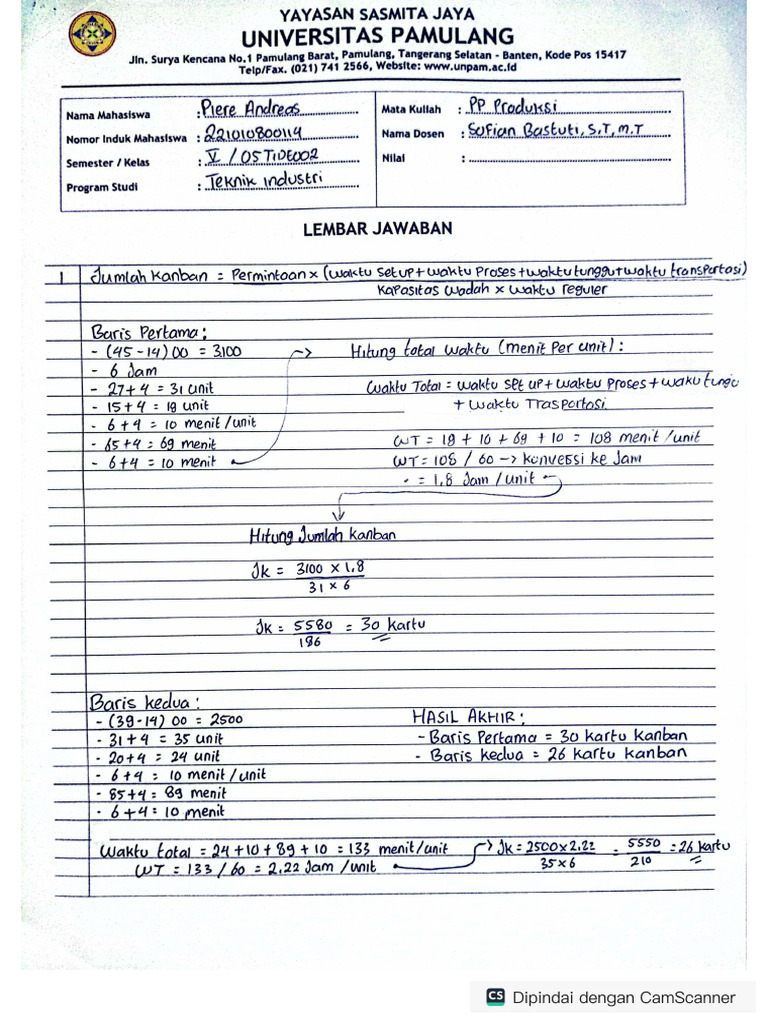 YAYASAN SASMITA JAYA
UNIVERSITAS PAMULANG
Jln. Surya Kencana No.1 Pamulang Barat, Pamulang, Tangerang Selatan - Banten, Kode Pos 15417
Telp/Fax. (021) 741 2566, Website: www.unpam.ac.id
Nama Mahasiswa : Piere Andreas
Nomor Induk Mahasiswa : 221010800114
Semester / Kelas : V / 05TIDE002
Program Studi : Teknik industri
Mata Kuliah : PP Produksi
Nama Dosen : Sofian Bastuti, S,T, M,T
Nilai :
LEMBAR JAWABAN
1 Jumlah Kanban = Permintaan x (waktu setup + waktu Proses + waktu tunggu + waktu transportasi)
Kapasitas wadah x waktu reguler
Baris Pertama :
- (45 - 14) 00 = 3100
- 6 Jam
- 27 + 4 = 31 unit
- 15 + 4 = 19 unit
- 6 + 4 = 10 menit / unit
- 65 + 4 = 69 menit
- 6 + 4 = 10 menit
Hitung total waktu (menit Per unit) :
Waktu Total = waktu set up + waktu Proses + waku tungu
+ waktu Trasportasi
WT = 19 + 10 + 69 + 10 = 108 menit / unit
WT = 108 / 60 -> konversi ke Jam
= 1,8 Jam / unit
Hitung Jumlah kanban
Jk = 3100 x 1,8
31 x 6
Jk = 5580 = 30 kartu
186
Baris kedua :
- (39 - 14) 00 = 2500
- 31 + 4 = 35 unit
- 20 + 4 = 24 unit
- 6 + 4 = 10 menit / unit
- 85 + 4 = 89 menit
- 6 + 4 = 10 menit
HASIL AKHIR :
- Baris Pertama = 30 kartu kanban
- Baris kedua = 26 kartu kanban
Waktu total = 24 + 10 + 89 + 10 = 133 menit / unit
WT = 133 / 60 = 2,22 Jam / unit
Jk = 2500 x 2,22 = 5550 = 26 kartu
35 x 6 210
CS Dipindai dengan CamScanner